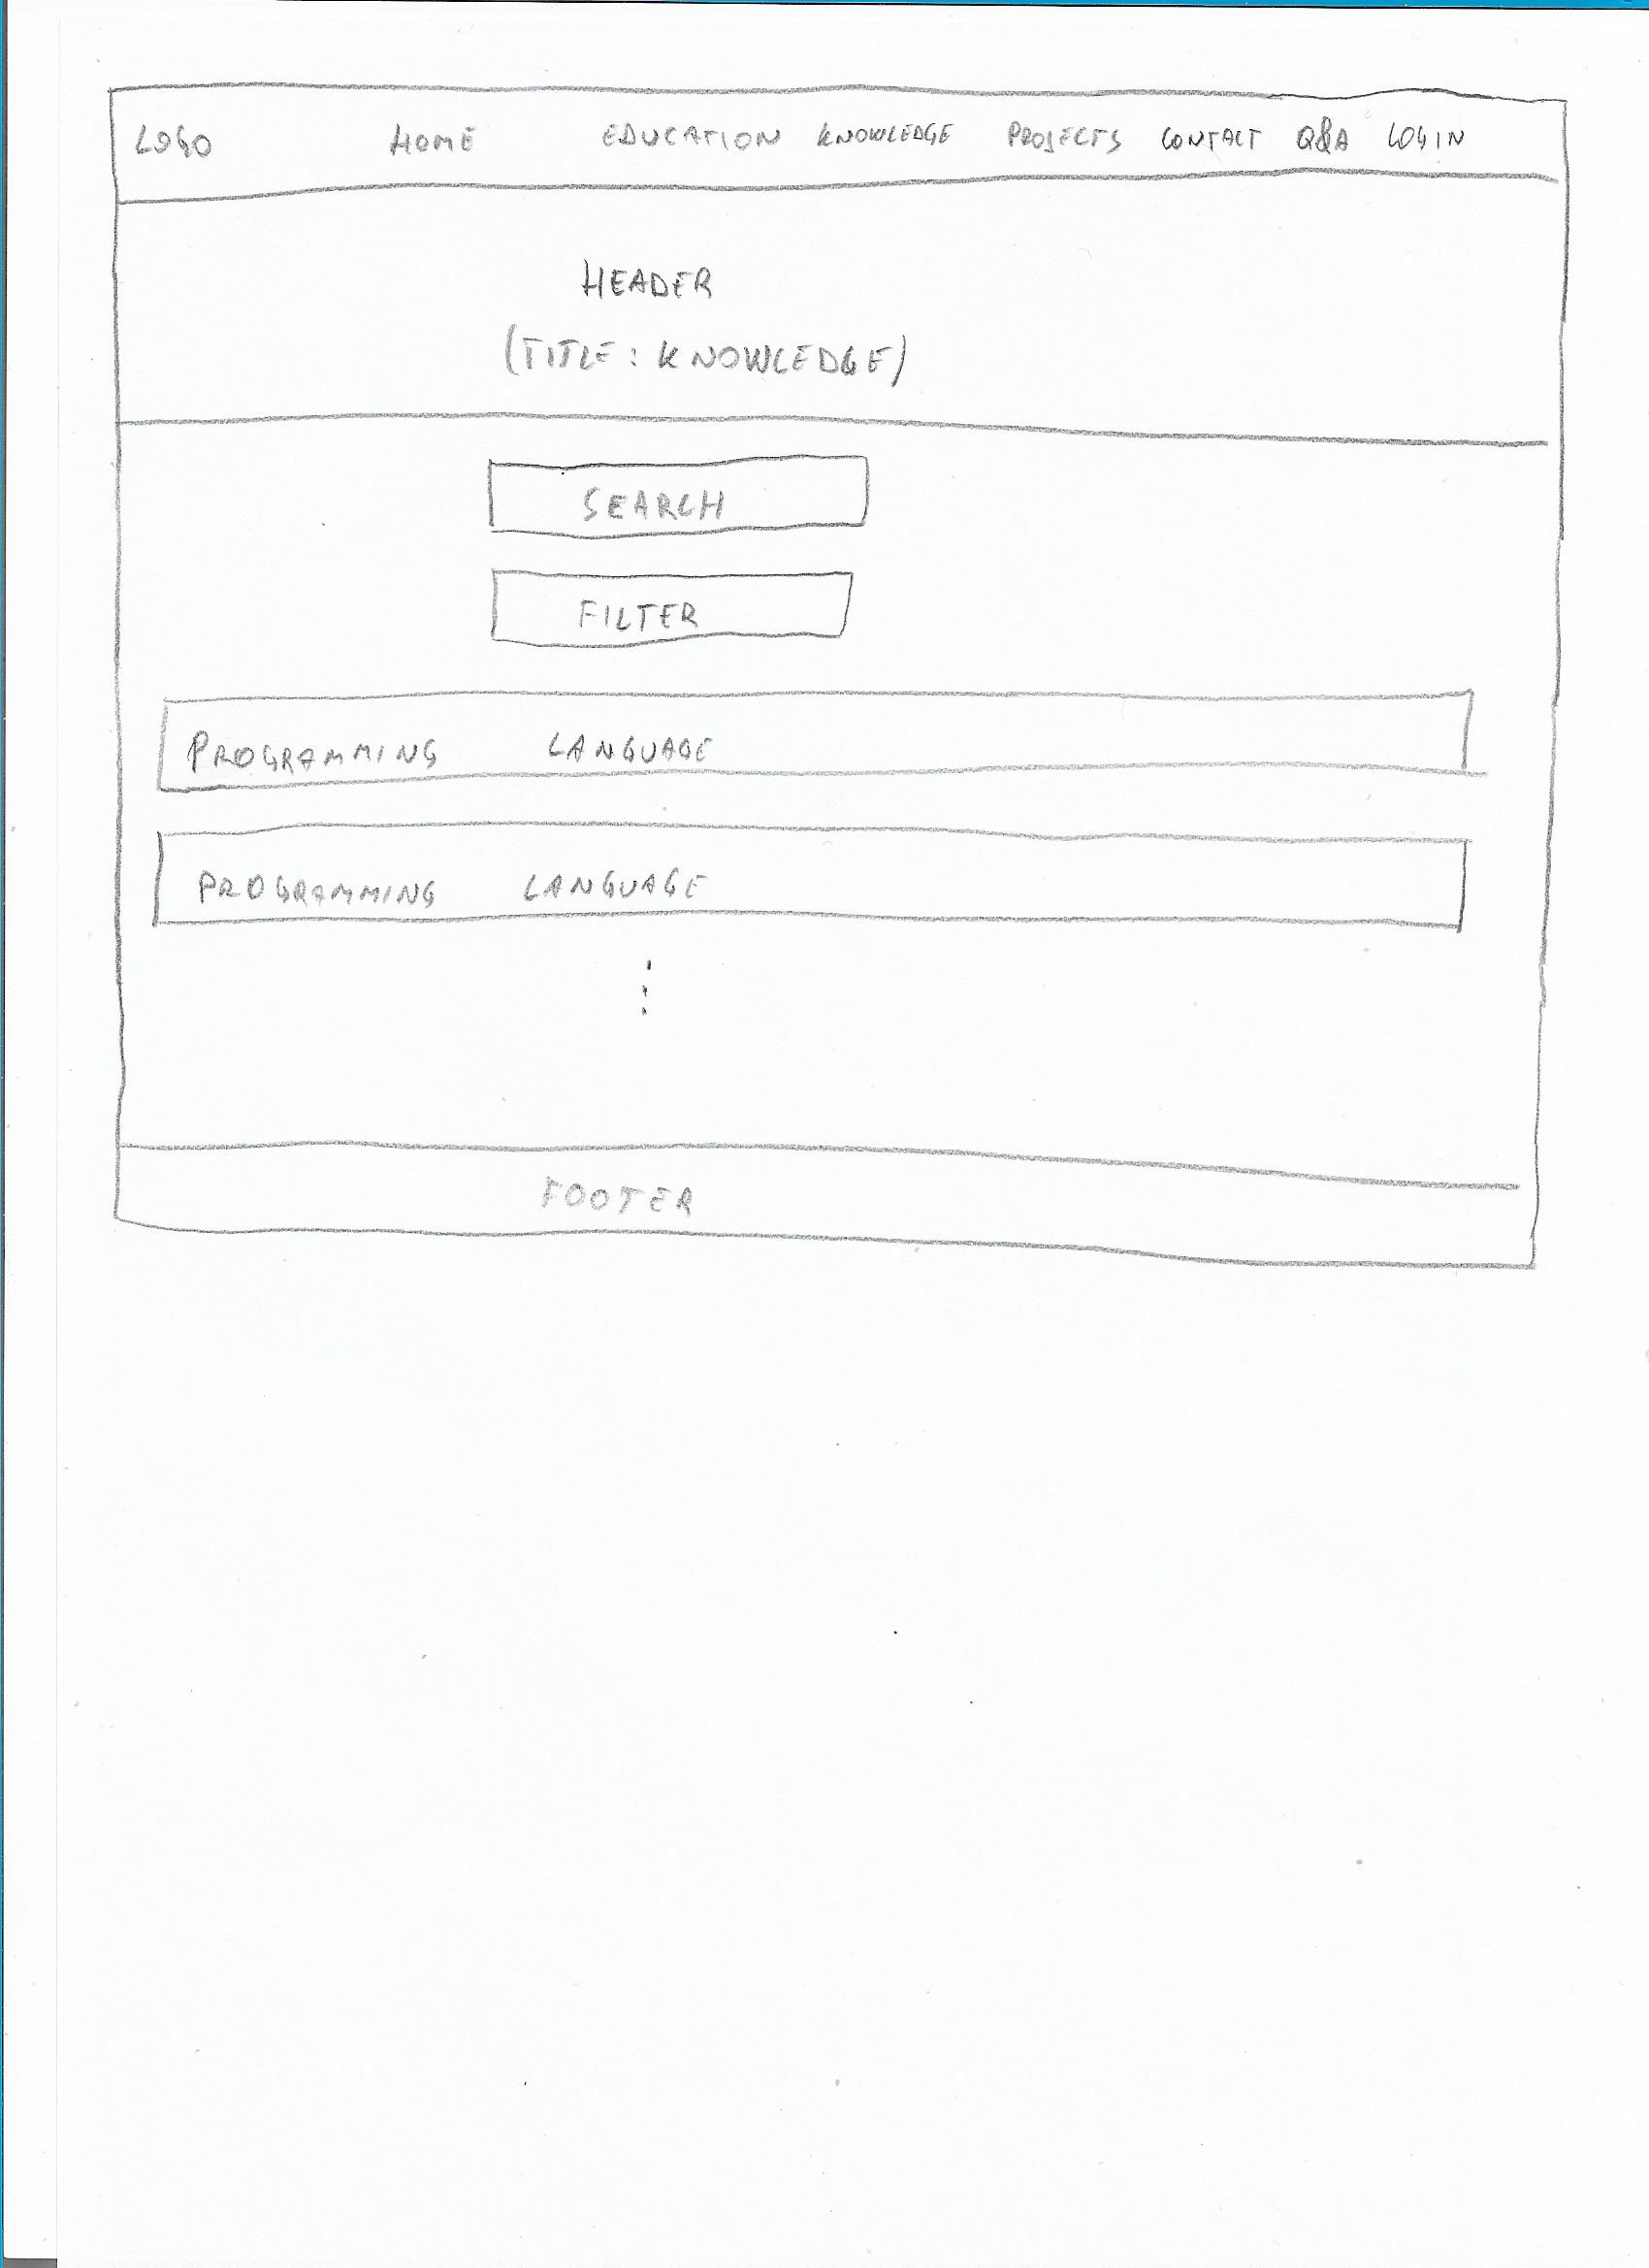 LOGO HOME EDUCATION KNOWLEDGE PROJECTS CONTACT Q&A LOGIN
HEADER
(TITLE: KNOWLEDGE)
SEARCH
FILTER
PROGRAMMING LANGUAGE
PROGRAMMING LANGUAGE
FOOTER